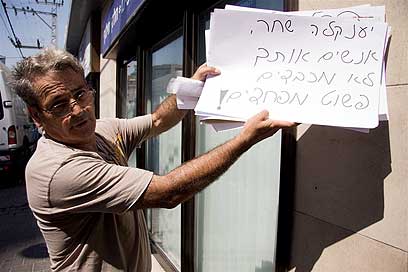 יענקלה שחר,
אנשים אותך
לא מכבדים
פשוט מפחדים!